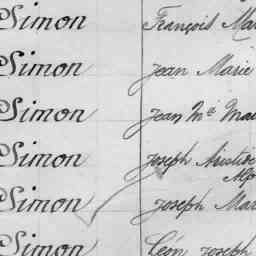 Simon François Ma
Simon Jean Marie
Simon Jean Mie Mar
Simon Joseph Aristide
Alp
Simon Joseph Mar
Simon Léon Joseph